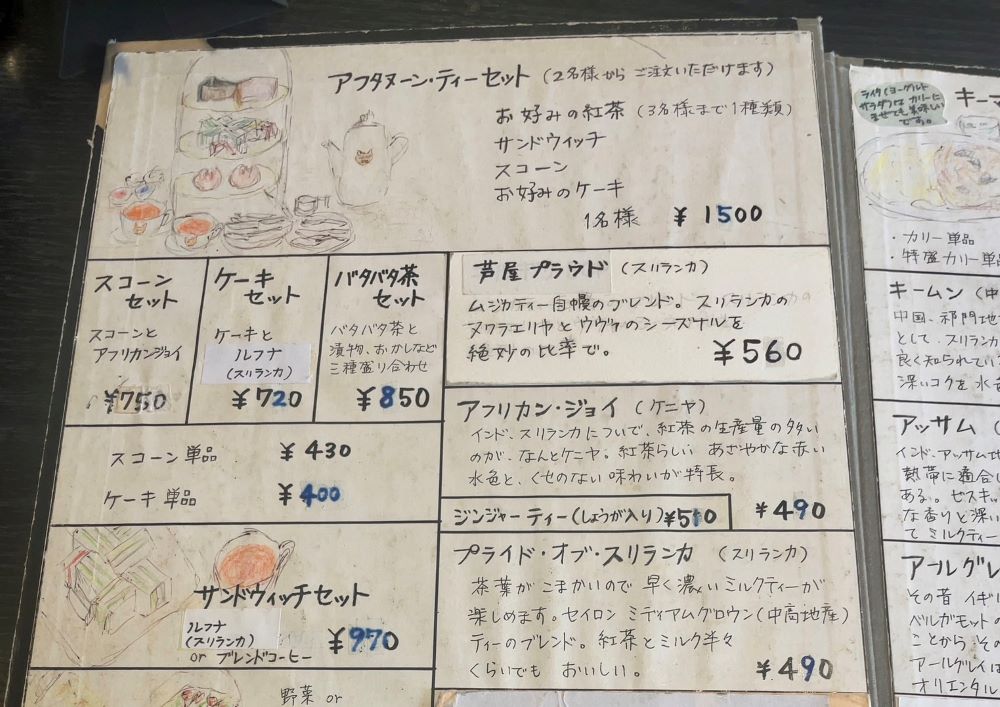 アフタヌーン・ティーセット (2名様から ご注文いただけます)
お好みの紅茶 (3名様まで1種類)
サンドウィッチ
スコーン
お好みのケーキ
1名様 ¥1500
スコーン
セット
スコーンと
アフリカンジョイ
¥750
ケーキ
セット
ケーキと
ルフナ
(スリランカ)
¥720
バタバタ茶
セット
バタバタ茶と
漬物、おかしなど
三種盛り合わせ
¥850
スコーン単品 ¥430
ケーキ単品 ¥400
サンドウィッチセット
ルフナ
(スリランカ)
or ブレンドコーヒー
¥970
野菜 or
芦屋プラウド (スリランカ)
ムジカティー自慢のブレンド。スリランカの
ヌワラエリヤとウヴァのシーズナルを
絶妙の比率で。
¥560
アフリカン・ジョイ (ケニヤ)
インド、スリランカについで、紅茶の生産量の多い
のが、なんとケニヤ。紅茶らしい あざやかな赤い
水色と、くせのない味わいが特長。
¥490
ジンジャーティー(しょうが入り)¥510
プライド・オブ・スリランカ (スリランカ)
茶葉がこまかいので早く濃いミルクティーが
楽しめます。セイロン ミディアムグロウン(中高地産)
ティーのブレンド。紅茶とミルク半々
くらいでも おいしい。
¥490
ライタ(ヨーグルト
サラダ)は カリーに
まぜても美味しい
です。
キーマ
・カリー単品
・特盛カリー単品
キームン (中
中国、祁門地
として、スリランカ
良く知られてい
深いコクを 水色
アッサム (
インド、アッサム地
熱帯に適合し
ある。ゼスキュ
な香りと深い
て ミルクティー
アールグレ
その昔 イギリ
ベルガモットの
ことから その
アールグレイは
オリエンタル